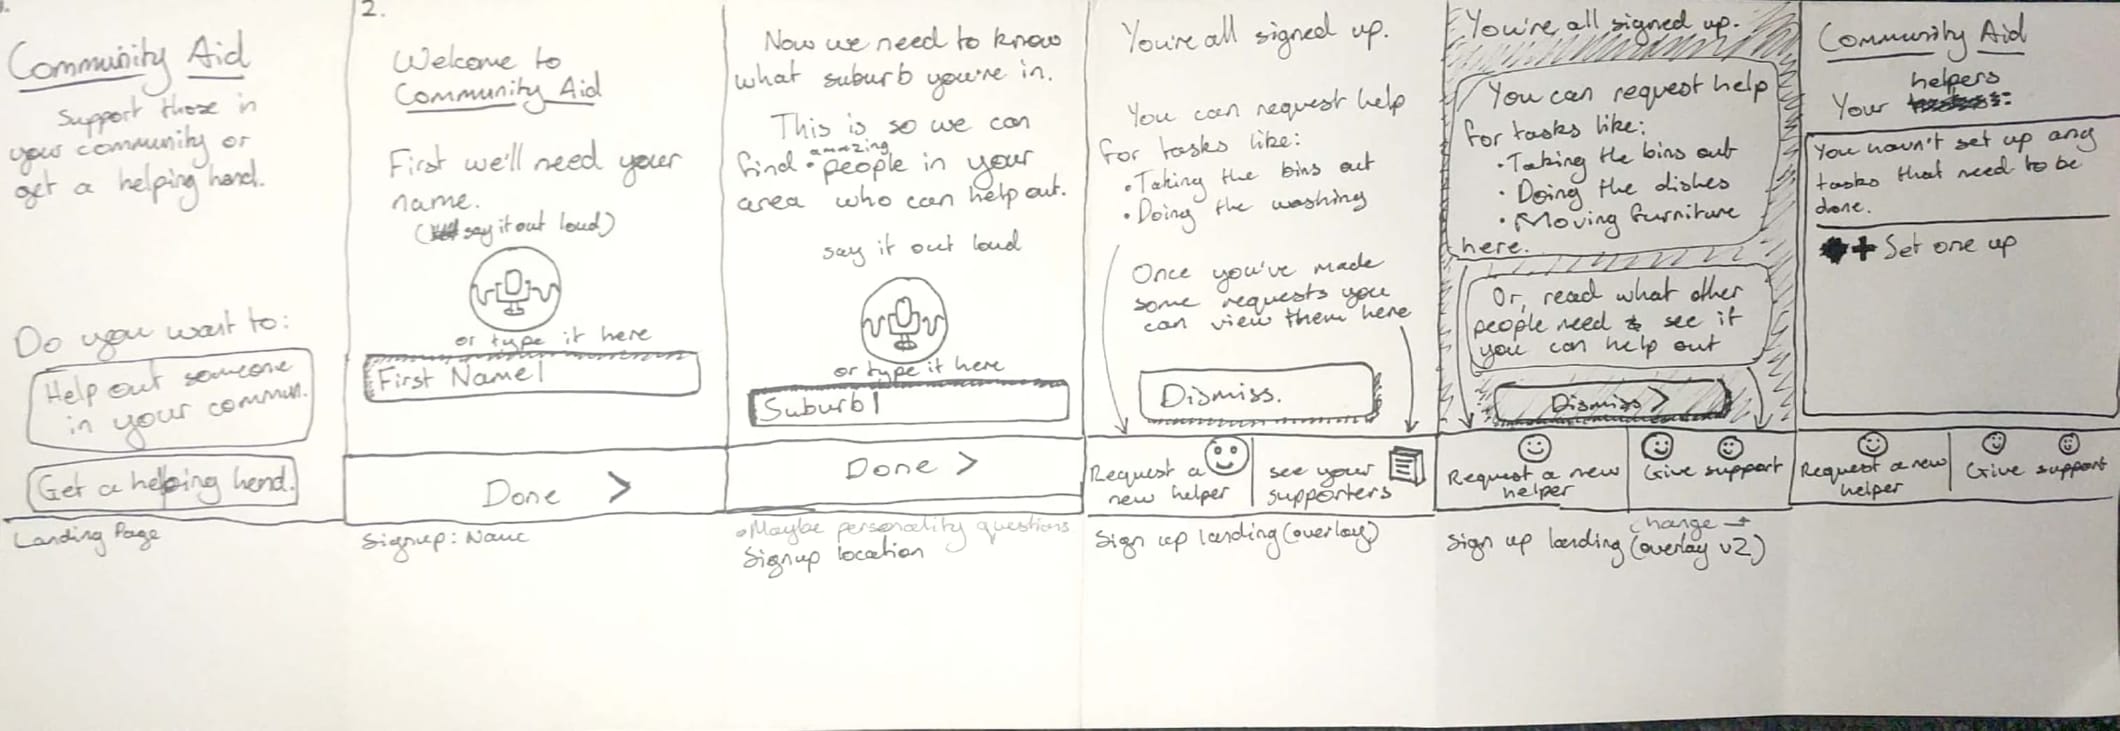 1.
Community Aid
Support those in
your community or
get a helping hand.
Do you want to:
Help out someone
in your commun.
Get a helping hand.
Landing Page
2.
Welcome to
Community Aid
First we'll need your
name.
( say it out loud)
or type it here
First Name|
Done >
Signup: Name
Now we need to know
what suburb you're in.
This is so we can
find amazing people in your
area who can help out.
say it out loud
or type it here
Suburb|
Done >
Maybe personality questions
Signup location
You're all signed up.
You can request help
for tasks like:
• Taking the bins out
• Doing the washing
Once you've made
some requests you
can view them here
Dismiss.
Request a
new helper
see your
supporters
Sign up landing (overlay)
You're all signed up.
You can request help
for tasks like:
• Taking the bins out
• Doing the dishes
• Moving furniture
here.
Or, read what other
people need & see if
you can help out
Dismiss >
Request a new
helper
Give support
change →
Sign up landing (overlay v2)
Community Aid
helpers
Your
You havn't set up any
tasks that need to be
done.
+ Set one up
Request a new
helper
Give support